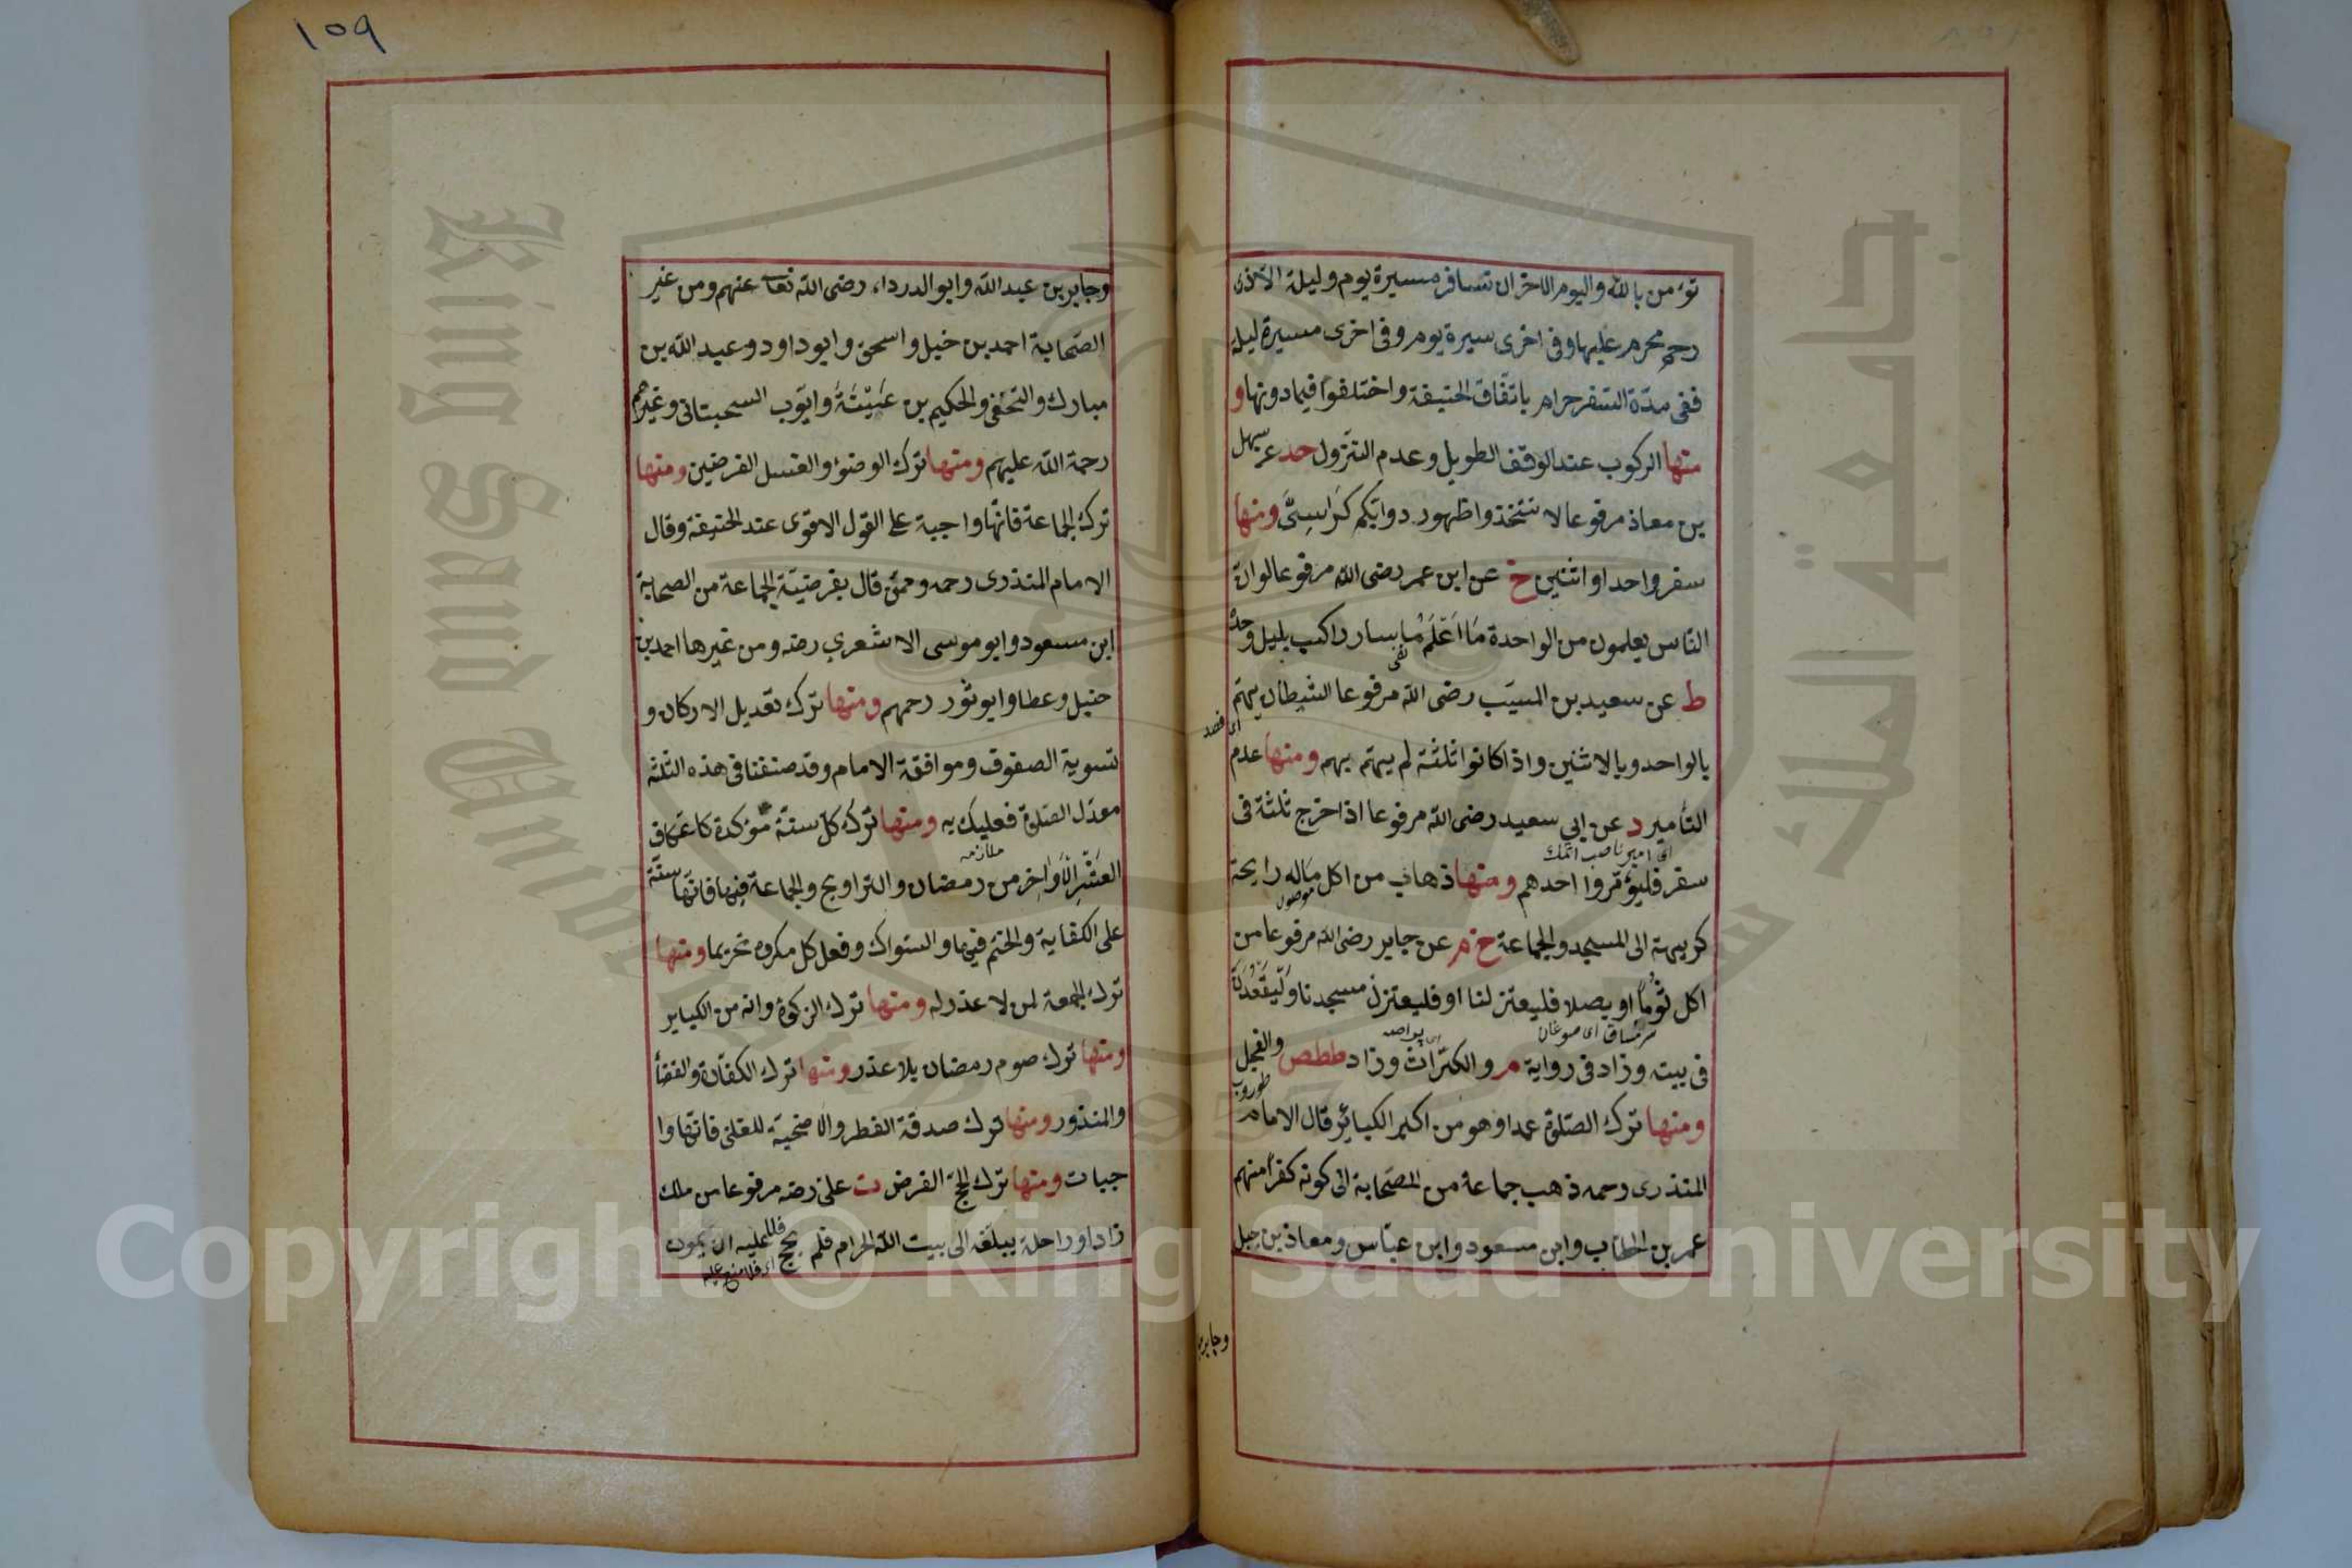 تؤمن بالله واليوم الاخر ان تسافر مسيرة يوم وليلة الا مع ذى
رحم محرم عليها وفى اخرى سيرة يوم وفى اخرى مسيرة ليلة
ففى مدّة السّفر حرام باتفاق الحنيفة واختلفوا فيما دونها و
منها الركوب عند الوقف الطويل وعدم النّزول حد عن سهل
بن معاذ مرفوعا لا تتخذوا ظهور دوابكم كراسىّ ومنها
سفر واحد او اثنين خ عن ابن عمر رضى الله مرفوعا لو ان
النّاس يعلمون من الواحدة ما اعلم ما سار راكب بليل وحده
نفى
ط عن سعيد بن المسيّب رضى الله مرفوعا الشيطان يهتم
اى قصد
بالواحد وبالاثنين واذا كانوا ثلثة لم يهتم بهم ومنها عدم
التأمير د عن ابى سعيد رضى الله مرفوعا اذا خرج ثلثة فى
اى امير ناصب اتمك
سفر فليؤمّروا احدهم ومنها ذهاب من اكل ماله رايحة
موصول
كريهة الى المسجد والجماعة خ م عن جابر رضى الله مرفوعا من
اكل ثوما او بصلا فليعتزلنا او فليعتزل مسجدنا وليقعد
سرمساق اى صوغان
فى بيته وزاد فى رواية م والكرّاث وزاد ططص والفجل
اى پراصه
طوروب
ومنها ترك الصّلوة عمدا وهو من اكبر الكبائر قال الامام
المنذرى رحمه ذهب جماعة من الصّحابة الى كونه كفرا منهم
عمر بن الخطاب وابن مسعود وابن عبّاس ومعاذ بن جبل
وجابر بن
١٥٩
وجابر بن عبد الله وابو الدرداء رضى الله تعا عنهم ومن غير
الصّحابة احمد بن خبل واسحق وابو داود وعبد الله بن
مبارك والنّخعى والحكيم بن عيينة وايّوب السحبتانى وغيرهم
رحمة الله عليهم ومنها ترك الوضوء والغسل الفرضين ومنها
ترك الجماعة فانّها واجبة على القول الاقوى عند الحنيفة وقال
الامام المنذرى رحمه وممّن قال بفرضيّة الجماعة من الصحابة
ابن مسعود وابو موسى الاشعري رضه ومن غيرها احمد بن
حنبل وعطا وابو ثور رحمهم ومنها ترك تعديل الاركان و
تسوية الصفوف وموافقة الامام وقد صنفنا فى هذه الثلثه
معدّل الصّلوة فعليك به ومنها ترك كلّ سنة مؤكدة كاعتكاف
ملازمه
العشر الاواخر من رمضان والتراويح والجماعة فيها فانّها سنّة
على الكفاية والختم فيها والسّواك وفعل كل مكروه تحريما ومنها
ترك الجمعة لمن لا عذر له ومنها ترك الزكوة وانه من الكباير
ومنها ترك صوم رمضان بلا عذر ومنها ترك الكفّارة والقضأ
والمنذور ومنها ترك صدقة الفطر والاضحية للغنى فانّها وا
جبات ومنها ترك الحجّ الفرض ت على رضه مرفوعا من ملك
زادا وراحلة يبلغه الى بيت الله الحرام فلم يحج فلا عليه ان يموت
اى فلا منع عليه
Copyright © King Saud University
King Saud University
جامعة الملك سعود
1957